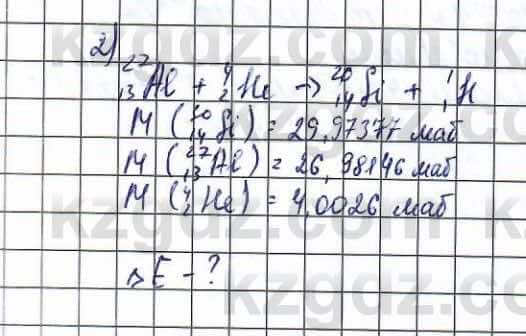 2)
²⁷₁₃Al + ⁴₂He → ³⁰₁₄Si + ¹₁H
M (³⁰₁₄Si) = 29,97377 маб
M (²⁷₁₃Al) = 26,98146 маб
M (⁴₂He) = 4,0026 маб
ΔE - ?
kzgdz.com